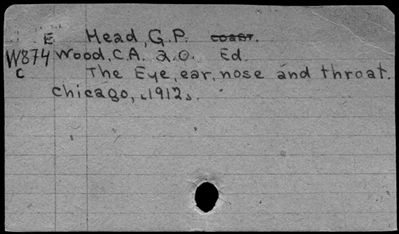 E Head, G.P. coast.
W874 Wood, C.A. & O. Ed.
C The Eye, ear, nose and throat.
Chicago, 1912.